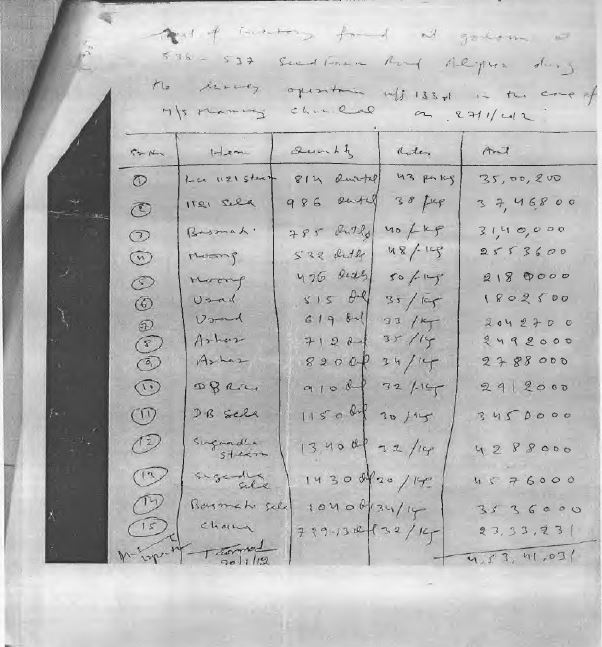 of inventory found at godown at
538-537 Road Alipur during
the survey operation u/s 133A in the case of
M/s on 27/1/2012
Sr No Item Quantity Rates Amt
1 1121 Steam 814 quintal 43 per kg 35,00,200
2 1121 Sela 986 quintal 38 /kg 37,46800
3 Basmati 785 qutls 40 /-kg 3140,000
4 Moong 532 qutls 48/-kg 2553600
5 Moong 436 qutls 50/-kg 2180000
6 Urad 515 Qtl 35/kg 1802500
7 Urad 619 Qtl 33/kg 2042700
8 Arhar 712 Qtl 35/kg 2492000
9 Arhar 820 Qtl 34/kg 2788000
10 DB Rice 910 Qtl 32/-kg 2912000
11 DB Sela 1150 Qtl 30/kg 3450000
12 Sugandha steam 1340 Qtl 32/kg 4288000
13 Sugandha Sela 1430 Qtl /kg 4576000
14 Basmati Sela 1040 Qtl 34/kg 3536000
15 Chana 32/kg 23,33,231
4,53,41,031